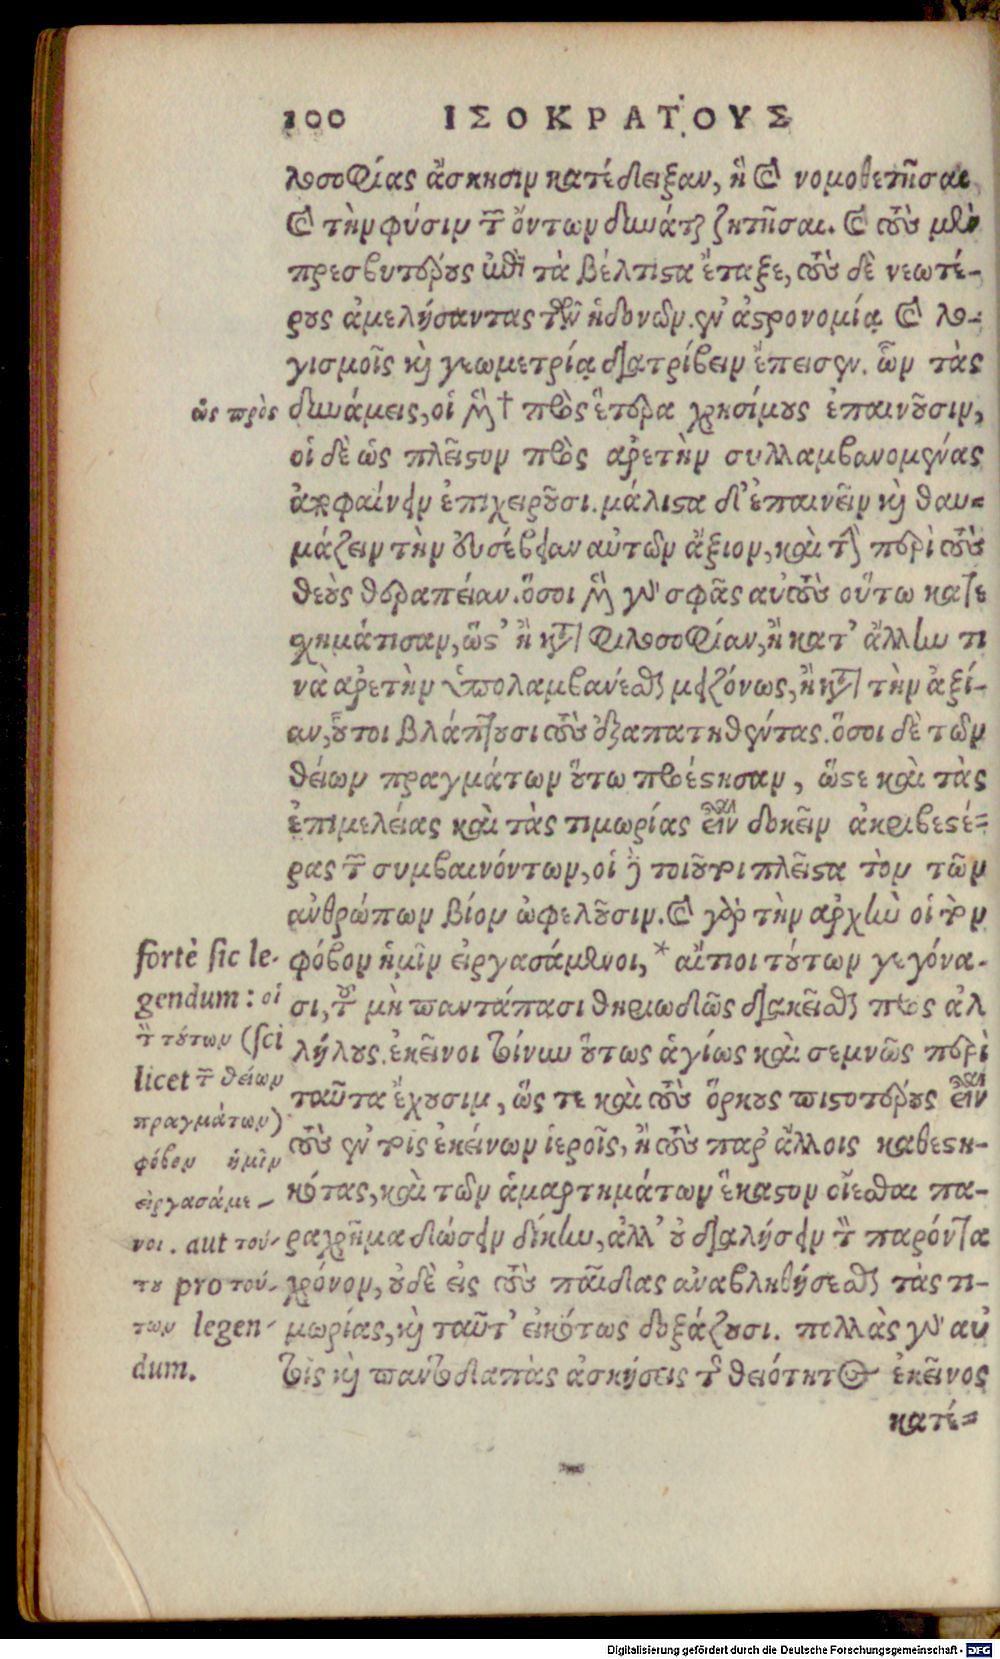 100 ΙΣΟΚΡΑΤΟΥΣ
λοσοφίας ἄσκησιν κατέδειξαν, ἣ καὶ νομοθετῆσαι
καὶ τὴν φύσιν τῶν ὄντων δύναται ζητῆσαι. καὶ τοὺς μὲν
πρεσβυτέρους ἐπὶ τὰ βέλτιστα ἔταξε, τοὺς δὲ νεωτέ-
ρους ἀμελήσαντας τῶν ἡδονῶν, ἐν ἀστρονομίᾳ καὶ λο-
γισμοῖς καὶ γεωμετρίᾳ διατρίβειν ἔπεισεν. ὧν τὰς
ὡς πρὸς
δυνάμεις, οἱ μὲν † πρὸς ἕτερα χρησίμους ἐπαινοῦσιν,
οἱ δὲ ὡς πλεῖστον πρὸς ἀρετὴν συλλαμβανομένας
ἀποφαίνειν ἐπιχειροῦσι. μάλιστα δ' ἐπαινεῖν καὶ θαυ-
μάζειν τὴν εὐσέβειαν αὐτῶν ἄξιον, καὶ τὴν περὶ τοὺς
θεοὺς θεραπείαν. ὅσοι μὲν γὰρ σφᾶς αὐτοὺς οὕτω κατε
σχημάτισαν, ὥστ' ἢ κατὰ φιλοσοφίαν, ἢ κατ' ἄλλην τι
νὰ ἀρετὴν ὑπολαμβάνεσθαι μειζόνως, ἢ κατὰ τὴν ἀξί-
αν, οὗτοι βλάπτουσι τοὺς ἐξαπατηθέντας. ὅσοι δὲ τῶν
θείων πραγμάτων οὕτω προέστησαν, ὥστε καὶ τὰς
ἐπιμελείας καὶ τὰς τιμωρίας εἶναι δοκεῖν ἀκριβεστέ-
ρας τῶν συμβαινόντων, οἱ δὲ τοιοῦτοι πλεῖστα τὸν τῶν
ἀνθρώπων βίον ὠφελοῦσιν. καὶ γὰρ τὴν ἀρχὴν οἱ τὸν
φόβον ἡμῖν εἰργασάμενοι, * αἴτιοι τούτων γεγόνα-
σι, τοῦ μὴ παντάπασι θηριωδῶς διακεῖσθαι πρὸς ἀλ
λήλους. ἐκεῖνοι τοίνυν οὕτως ἁγίως καὶ σεμνῶς περὶ
ταῦτα ἔχουσιν, ὥς τε καὶ τοὺς ὅρκους πιστοτέρους εἶναι
τοὺς ἐν τοῖς ἐκείνων ἱεροῖς, ἢ τοὺς παρ' ἄλλοις καθεστη-
κότας, καὶ τῶν ἁμαρτημάτων ἕκαστον οἴεσθαι πα-
ραχρῆμα δώσειν δίκην, ἀλλ' οὐ διαλήσειν τὸν παρόντα
χρόνον, οὐδὲ εἰς τοὺς παῖδας ἀναβληθήσεσθαι τὰς τι-
μωρίας, καὶ ταῦτ' εἰκότως δοξάζουσι. πολλὰς γὰρ αὐ
τοῖς καὶ παντοδαπὰς ἀσκήσεις τῆς θειότητος ἐκεῖνος
κατέ-
fortè sic le-
gendum: οἱ
τὸν τούτων (sci
licet τῶν θείων
πραγμάτων)
φόβον ἡμῖν
εἰργασάμε-
νοι. aut τού-
του pro τού-
των legen-
dum.
Digitalisierung gefördert durch die Deutsche Forschungsgemeinschaft - DFG